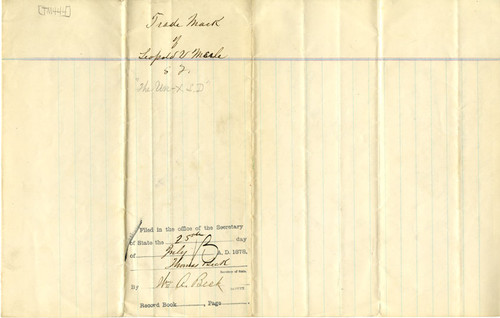 Trade Mark
of
Leopold V Merle
S. F.
Filed in the office of the Secretary
of State the 25th day
of July A. D. 1878,
Thomas Beck
Secretary of State.
By Wm A. Beck
Record Book , Page .